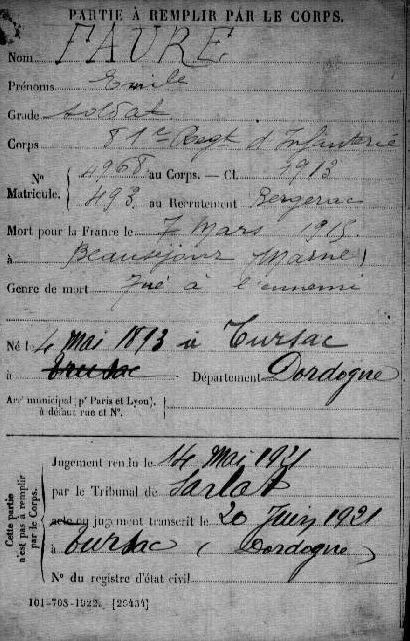 PARTIE À REMPLIR PAR LE CORPS.
Nom FAURE
Prénoms Emile
Grade soldat
Corps 81e Regt d'Infanterie
No Matricule. { 4968 au Corps. — Cl. 1913
493 au Recrutement Bergerac
Mort pour la France le 7 Mars 1915
à Beausejour Marne
Genre de mort Tué à l'ennemi
Né le 4 Mai 1893 à Tursac
à Département Dordogne
Arrt municipal (pr Paris et Lyon),
à défaut rue et No.
Cette partie n'est pas à remplir par le Corps.
Jugement rendu le 14 Mai 1921
par le Tribunal de Sarlat
acte ou jugement transcrit le 20 Juin 1921
à Tursac (Dordogne)
No du registre d'état civil
101-708-1922. [26434]